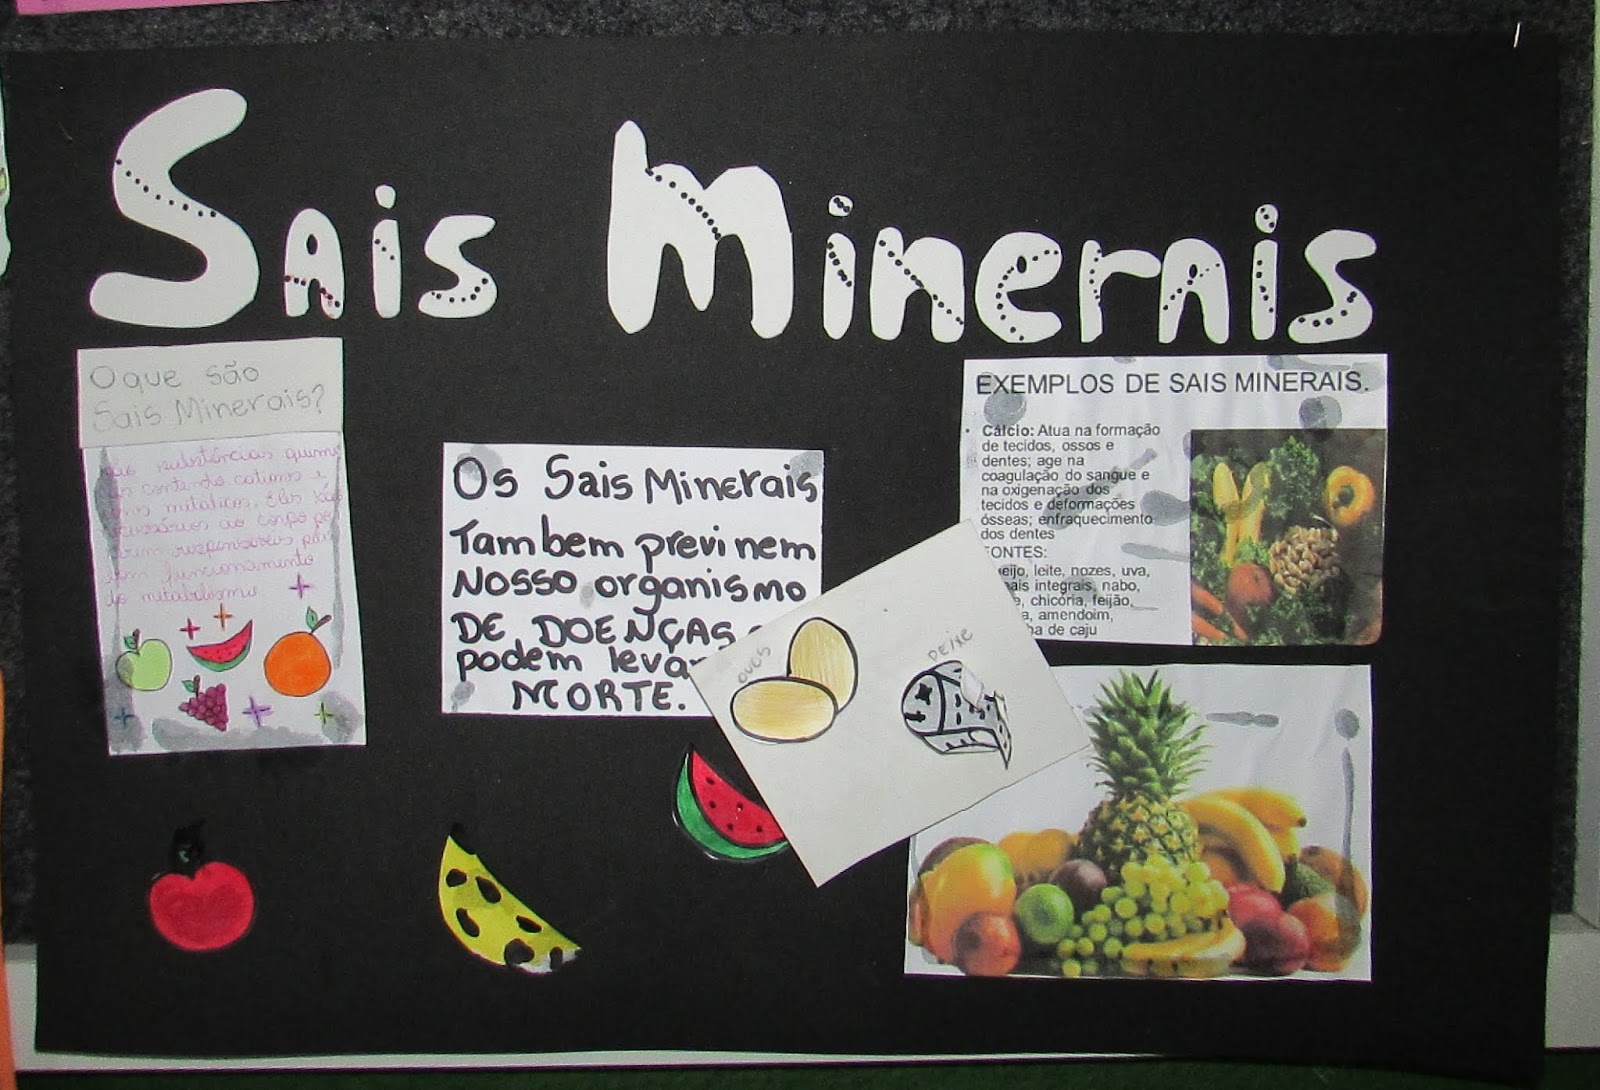 Sais Minerais
O que são
Sais Minerais?
são substâncias quími
contendo cations e
ions metalicos. Eles são
cessários ao corpo po
responsaveis pelo
funcionamento
do metabolismo
Os Sais Minerais
Tambem previnem
Nosso organismo
DE DOENÇAS
podem levar
MORTE.
OVOS
PEIXE
EXEMPLOS DE SAIS MINERAIS.
• Cálcio: Atua na formação
de tecidos, ossos e
dentes; age na
coagulação do sangue e
na oxigenação dos
tecidos e deformações
ósseas; enfraquecimento
dos dentes
FONTES:
eijo, leite, nozes, uva,
ais integrais, nabo,
e, chicória, feijão,
a, amendoim,
ha de caju